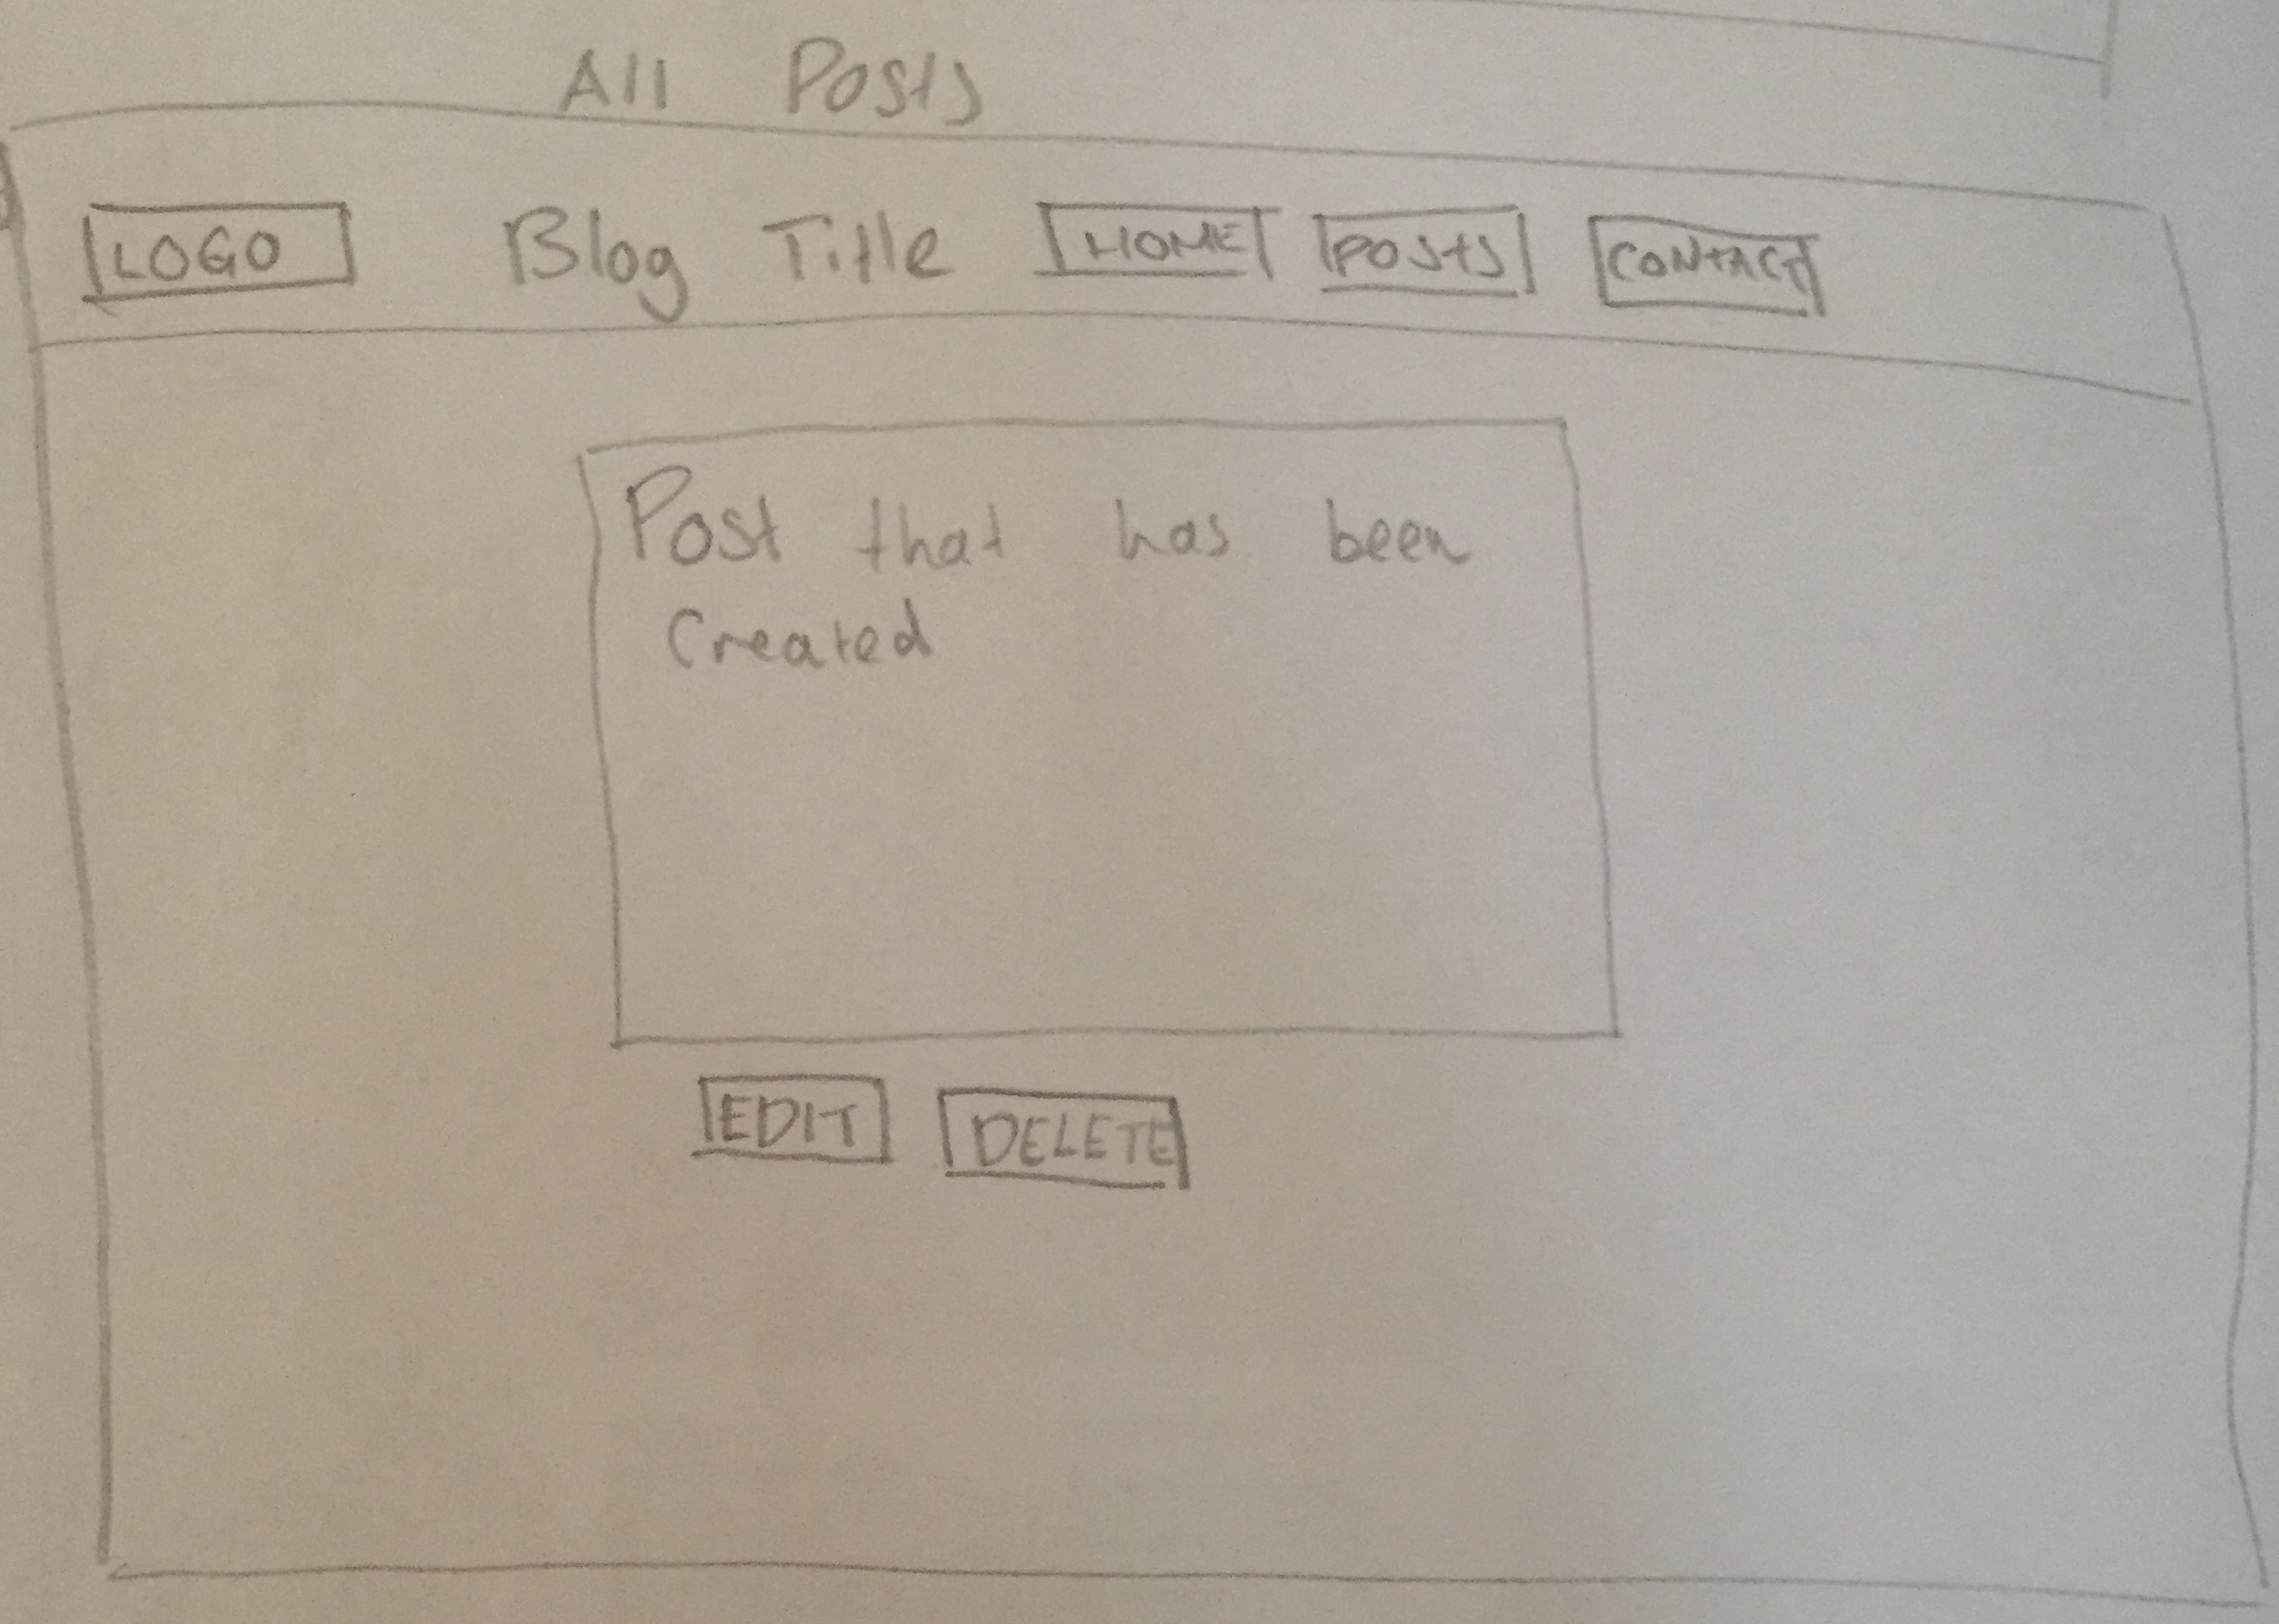 All Posts
LOGO Blog Title HOME POSTS CONTACT
Post that has been
Created
EDIT DELETE